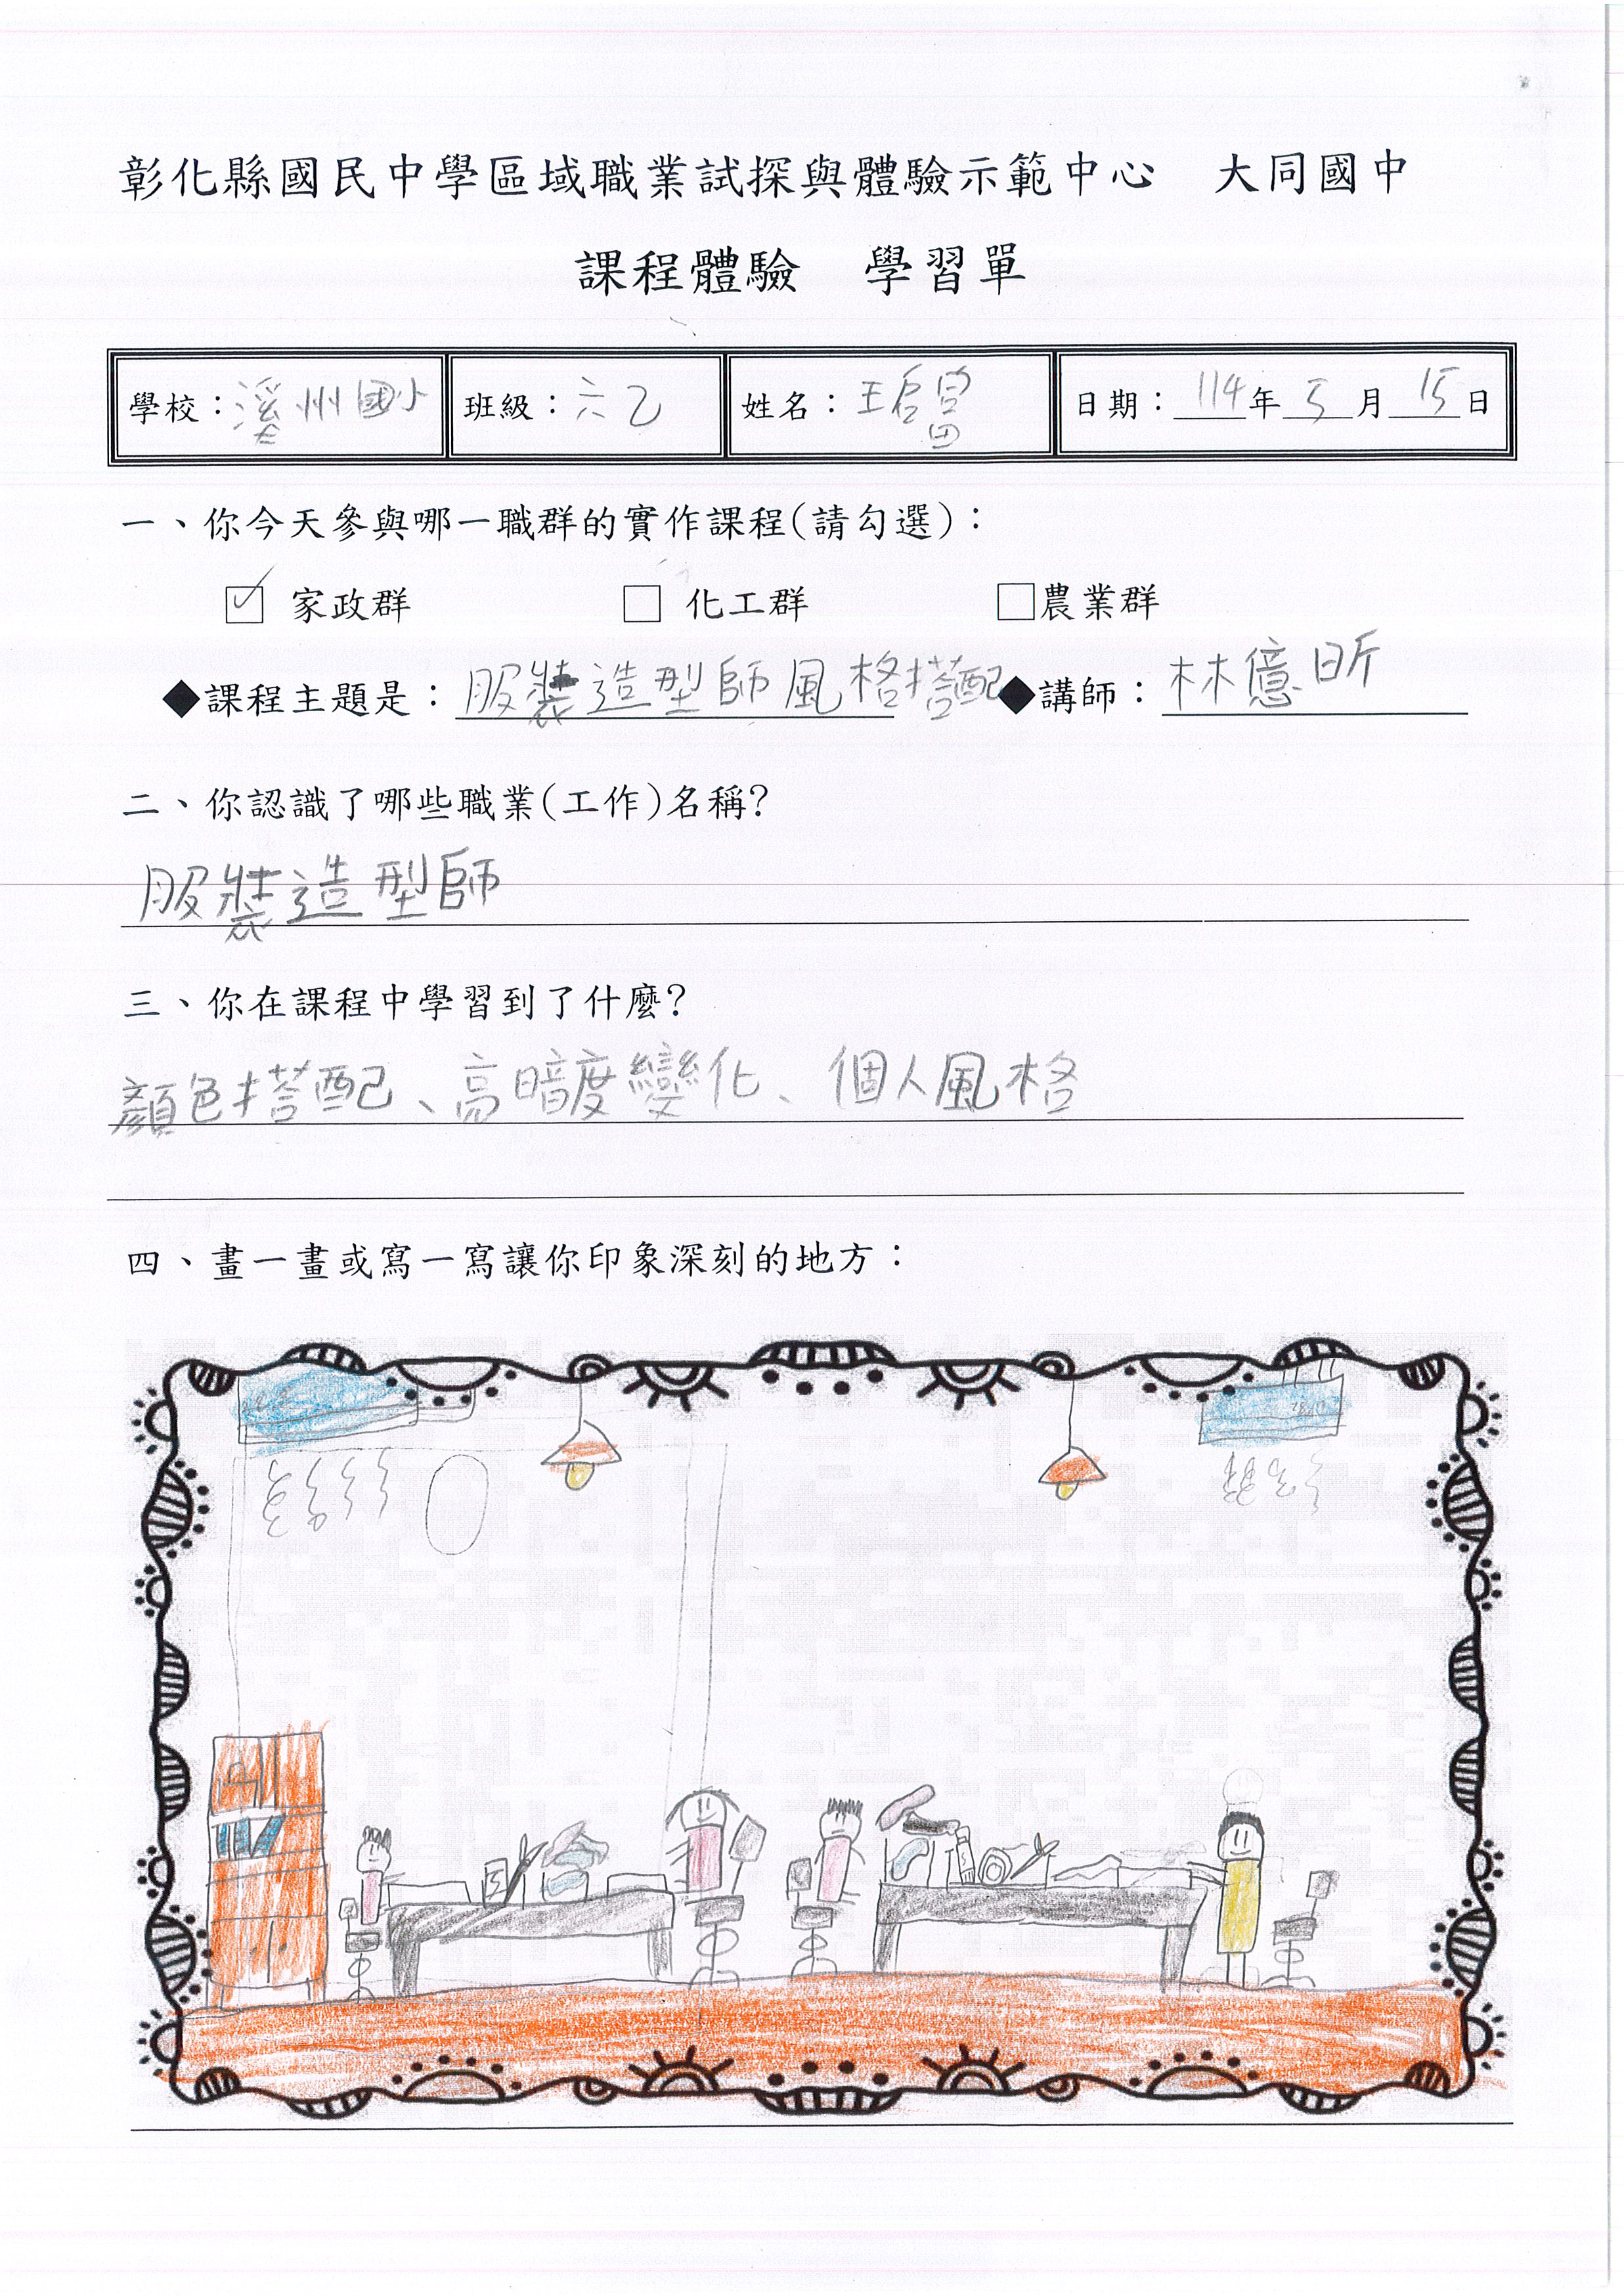 彰化縣國民中學區域職業試探與體驗示範中心 大同國中
課程體驗 學習單
學校：溪州國小 班級：六乙 姓名：王 日期：114年5月15日
一、你今天參與哪一職群的實作課程(請勾選)：
☑ 家政群 □ 化工群 □農業群
◆課程主題是：服裝造型師風格搭配 ◆講師：林億昕
二、你認識了哪些職業(工作)名稱?
服裝造型師
三、你在課程中學習到了什麼?
顏色搭配、高暗度變化、個人風格
四、畫一畫或寫一寫讓你印象深刻的地方：